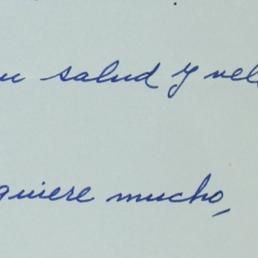 salud y
quiere mucho,